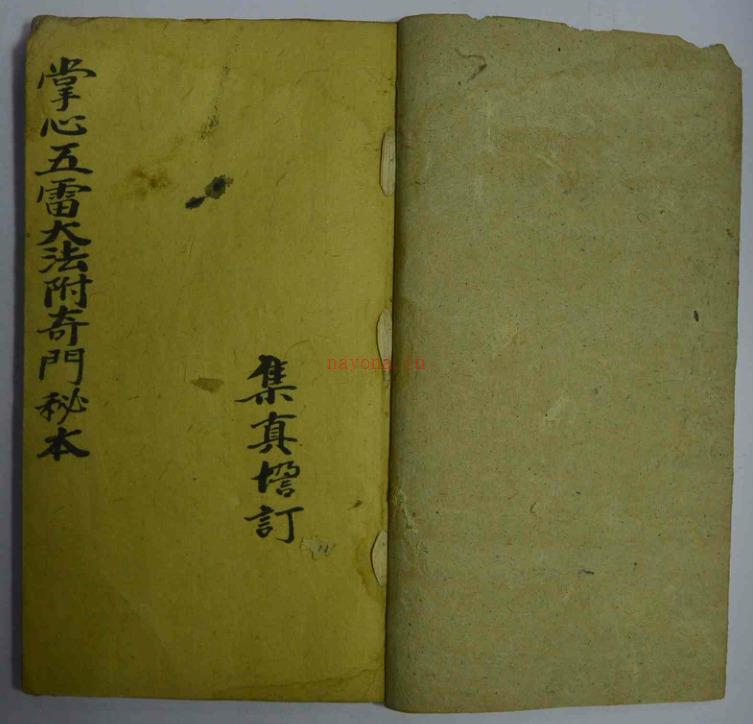 掌心五雷大法附奇門秘本
集真增訂
nayona.cn